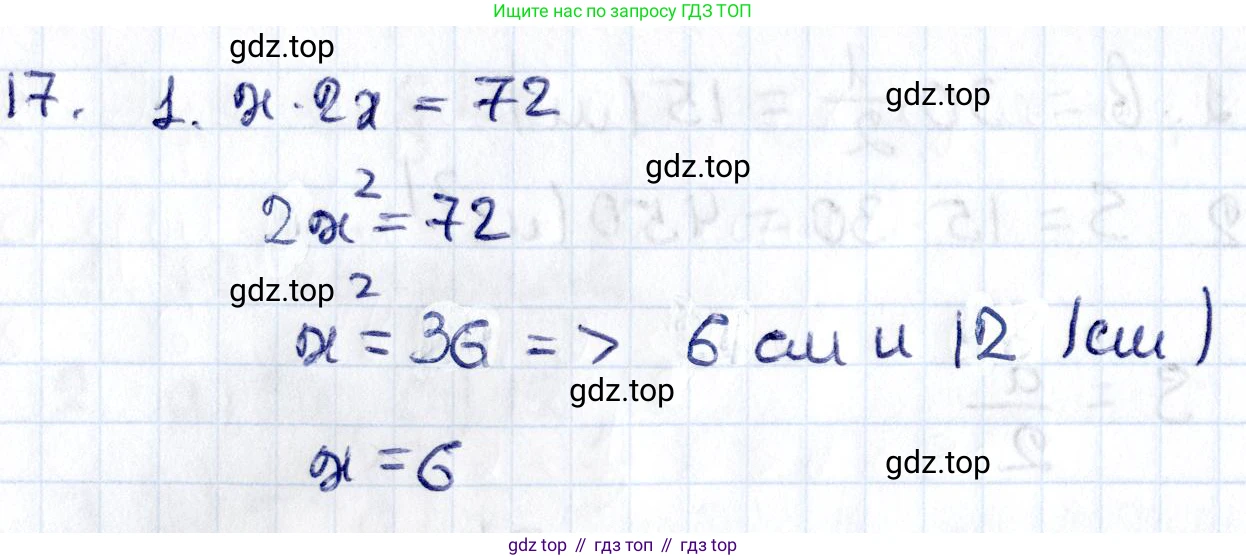 Ищите нас по запросу ГДЗ ТОП
gdz.top
17. 1. x · 2x = 72
gdz.top
gdz.top
2x² = 72
gdz.top
x² = 36 => 6 см и 12 (см)
gdz.top
x = 6
gdz.top
gdz top // гдз топ // gdz top